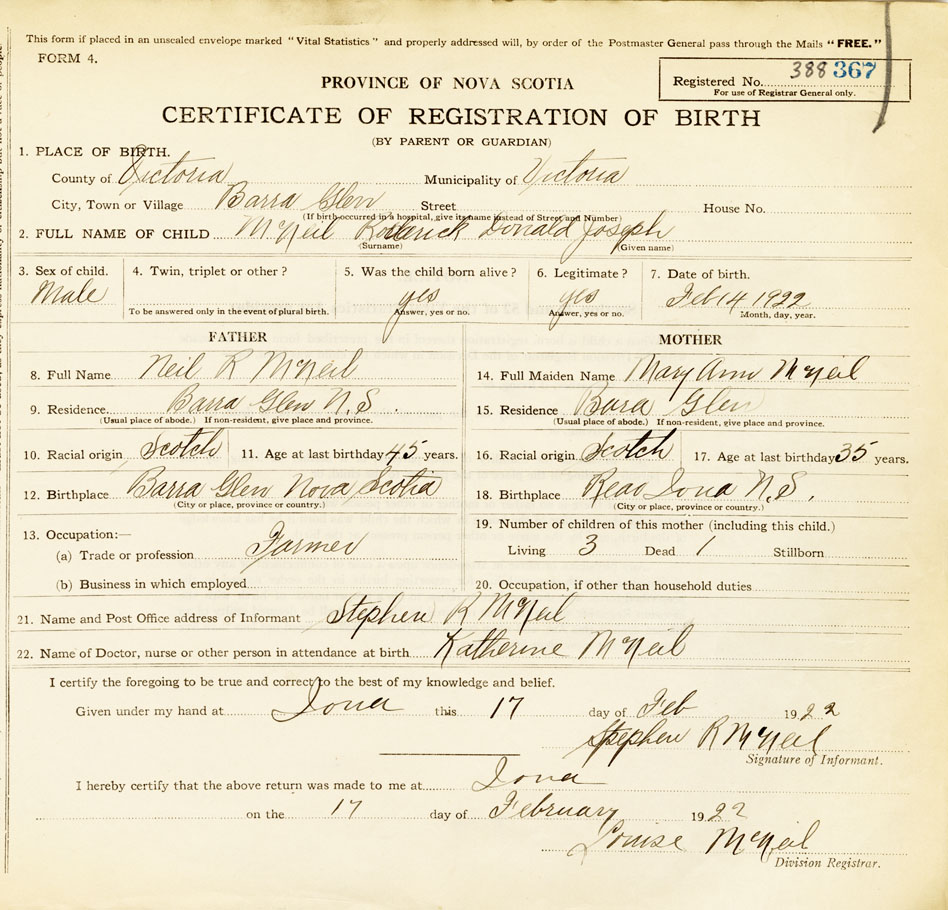 This form if placed in an unsealed envelope marked "Vital Statistics" and properly addressed will, by order of the Postmaster General pass through the Mails "FREE."
FORM 4.
Registered No. 388 367
For use of Registrar General only.
PROVINCE OF NOVA SCOTIA
CERTIFICATE OF REGISTRATION OF BIRTH
(BY PARENT OR GUARDIAN)
1. PLACE OF BIRTH.
County of Victoria Municipality of Victoria
City, Town or Village Barra Glen Street House No.
(If birth occurred in a hospital, give its name instead of Street and Number)
2. FULL NAME OF CHILD McNeil Roderick Donald Joseph
(Surname) (Given name)
3. Sex of child. 4. Twin, triplet or other? 5. Was the child born alive? 6. Legitimate? 7. Date of birth.
Male yes yes Feb 14 1922
To be answered only in the event of plural birth. Answer, yes or no. Answer, yes or no. Month, day, year.
FATHER
8. Full Name Neil R McNeil
9. Residence Barra Glen N.S.
(Usual place of abode.) If non-resident, give place and province.
10. Racial origin Scotch 11. Age at last birthday 45 years.
12. Birthplace Barra Glen Nova Scotia
(City or place, province or country.)
13. Occupation:—
(a) Trade or profession Farmer
(b) Business in which employed
MOTHER
14. Full Maiden Name Mary Ann McNeil
15. Residence Bara Glen
(Usual place of abode.) If non-resident, give place and province.
16. Racial origin Scotch 17. Age at last birthday 35 years.
18. Birthplace Rear Iona N.S.
(City or place, province or country.)
19. Number of children of this mother (including this child.)
Living 3 Dead 1 Stillborn
20. Occupation, if other than household duties
21. Name and Post Office address of Informant Stephen R McNeil
22. Name of Doctor, nurse or other person in attendance at birth Katherine McNeil
I certify the foregoing to be true and correct to the best of my knowledge and belief.
Given under my hand at Iona this 17 day of Feb 1922
Stephen R McNeil
Signature of Informant.
I hereby certify that the above return was made to me at Iona
on the 17 day of February 1922
Louise McNeil
Division Registrar.